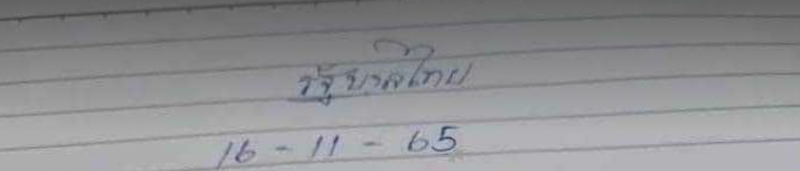 รัฐบาลไทย
16 - 11 - 65